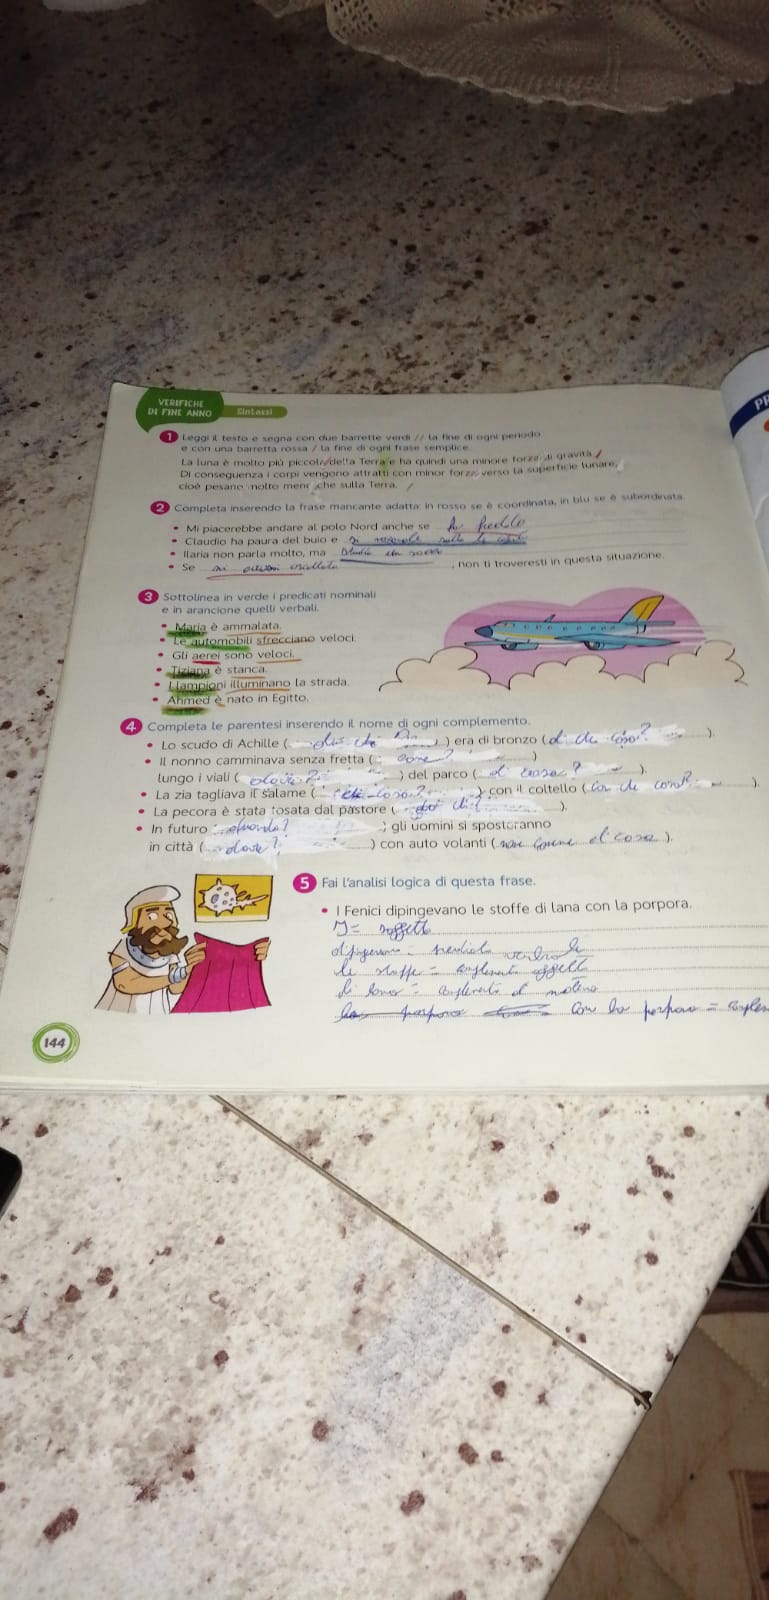 VERIFICHE
DI FINE ANNO
Sintassi
PR
1 Leggi il testo e segna con due barrette verdi // la fine di ogni periodo
e con una barretta rossa / la fine di ogni frase semplice.
La luna è molto più piccola della Terra e ha quindi una minore forza di gravità.
Di conseguenza i corpi vengono attratti con minor forza verso la superficie lunare,
cioè pesano molto meno che sulla Terra.
2 Completa inserendo la frase mancante adatta: in rosso se è coordinata, in blu se è subordinata.
• Mi piacerebbe andare al polo Nord anche se freddo
• Claudio ha paura del buio e si nasconde sotto le
• Ilaria non parla molto, ma
• Se mi ascoltato, non ti troveresti in questa situazione.
3 Sottolinea in verde i predicati nominali
e in arancione quelli verbali.
• Maria è ammalata.
• Le automobili sfrecciano veloci.
• Gli aerei sono veloci.
• Tiziana è stanca.
• I lampioni illuminano la strada.
• Ahmed è nato in Egitto.
4 Completa le parentesi inserendo il nome di ogni complemento.
• Lo scudo di Achille ( ) era di bronzo (di che cosa? ).
• Il nonno camminava senza fretta (come? )
lungo i viali (dove? ) del parco (di cosa? ).
• La zia tagliava il salame (che cosa? ) con il coltello (con che cosa? ).
• La pecora è stata tosata dal pastore (da ).
• In futuro (quando? ) gli uomini si sposteranno
in città (dove? ) con auto volanti ( di cosa ).
5 Fai l'analisi logica di questa frase.
• I Fenici dipingevano le stoffe di lana con la porpora.
= soggetto
dipingevano = predicato verbale
le stoffe = complemento oggetto
di lana = complemento di materia
con la porpora =
144